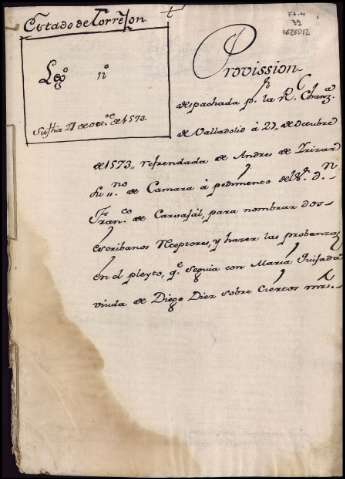 Estado de Torrejon
Leg.o n.o
Su fha 27 de de 1573.
Provission
despachada p.r la R.l Chanz.a
de Valladolid á 27 de Octubre
de 1573, refrendada de Andres de
de Camara á pedimento del S.r D.n
Fran.co de Carvajál, para nombrar dos
escribanos Rceptores, y hazer las probanzas
en el pleyto, q.e seguia con Maria Quijada
viuda de Diego Diez sobre Ciertos mrs.